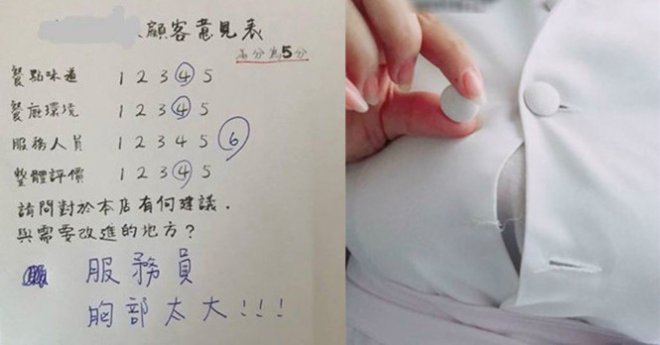 顧客意見表
滿分為5分
餐點味道 1 2 3 4 5
餐廳環境 1 2 3 4 5
服務人員 1 2 3 4 5 6
整體評價 1 2 3 4 5
請問對於本店有何建議，
與需要改進的地方？
服務員
胸部太大！！！